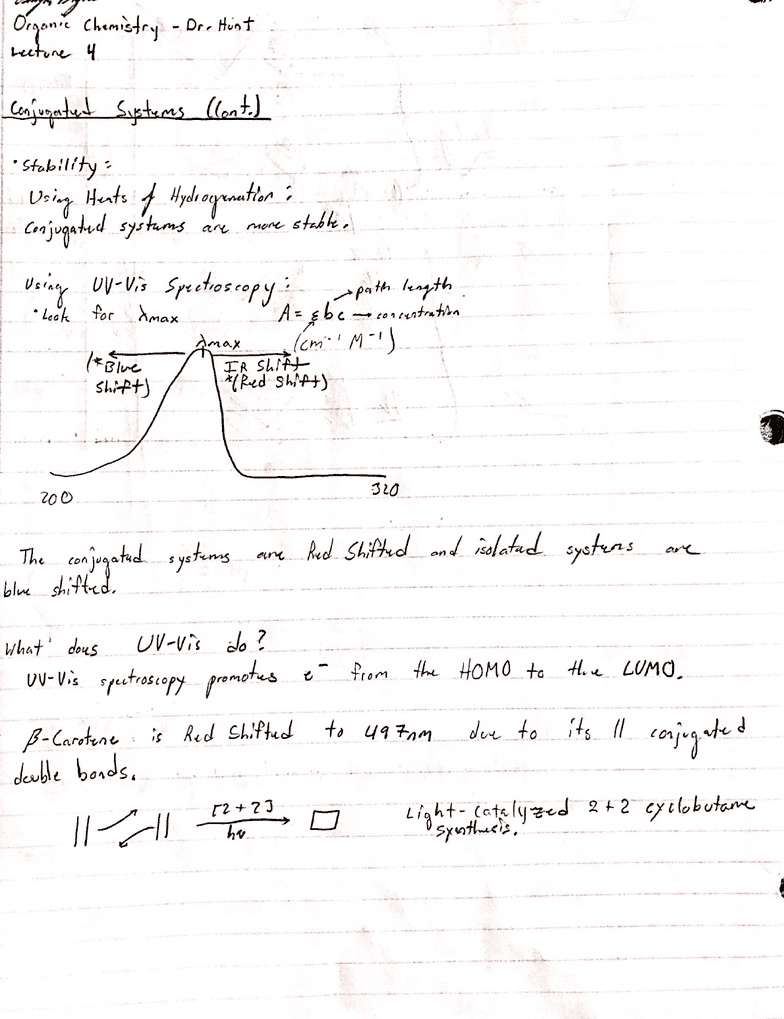 Organic Chemistry - Dr. Hunt
Lecture 4
Conjugated Systems (Cont.)
• Stability:
Using Heats of Hydrogenation:
Conjugated systems are more stable.
Using UV-Vis Spectroscopy:
→ path length
• Look for λmax
A = εbc → concentration
(cm⁻¹ M⁻¹)
λmax
(*Blue
Shift)
IR Shift
*(Red Shift)
200
320
The conjugated systems are Red Shifted and isolated systems are
blue shifted.
What does UV-Vis do?
UV-Vis spectroscopy promotes e⁻ from the HOMO to the LUMO.
β-Carotene is Red Shifted to 497nm due to its 11 conjugated
double bonds.
[2+2]
hν
Light-Catalyzed 2+2 cyclobutane
synthesis.